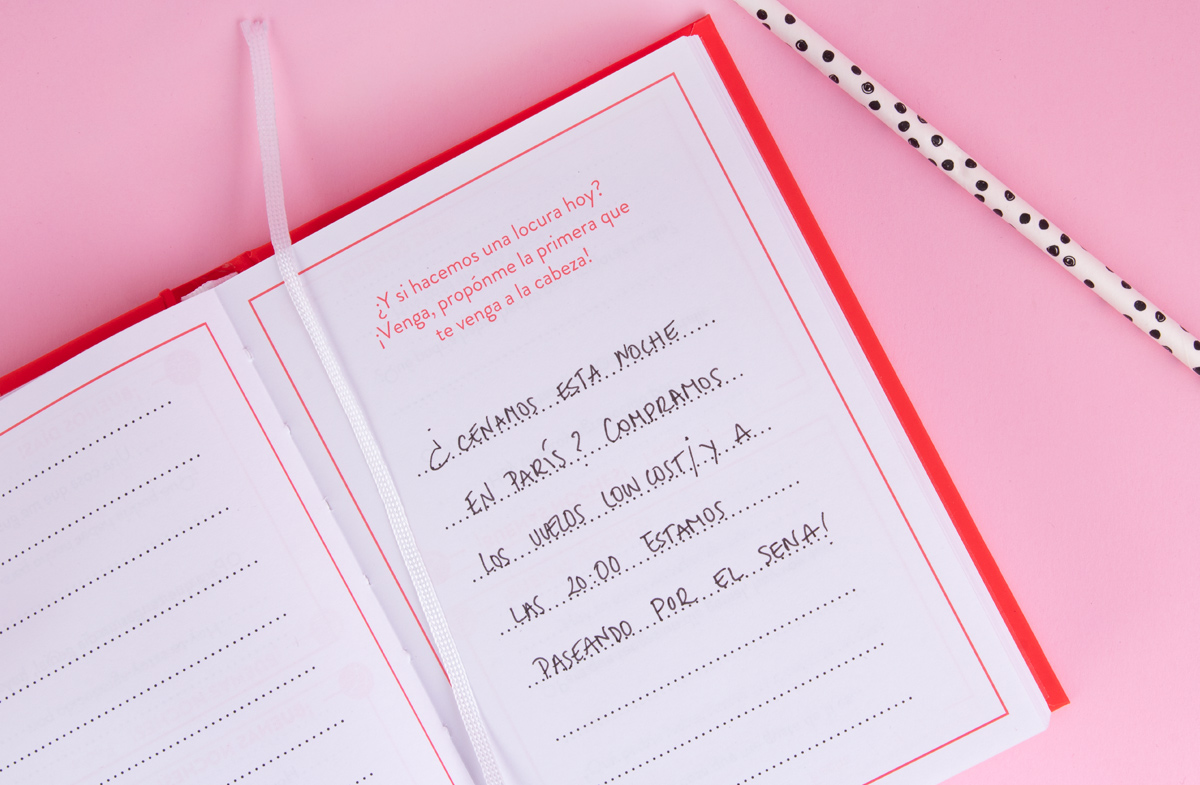 ¿Y si hacemos una locura hoy?
¡Venga, propónme la primera que
te venga a la cabeza!
¿CENAMOS ESTA NOCHE
EN PARÍS? COMPRAMOS
LOS VUELOS LOW COST ¡Y A
LAS 20:00 ESTAMOS
PASEANDO POR EL SENA!